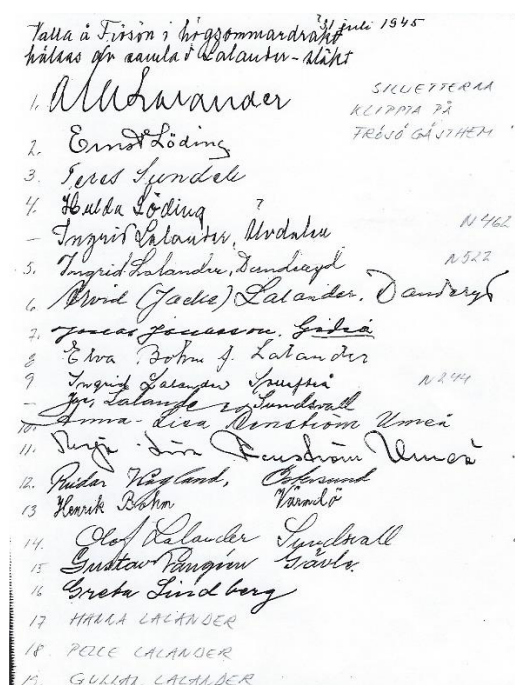 Valla å Frösön i högsommardräkt 31 juli 1945
hälsas av samlad Lalander-släkt
SILUETTERNA
KLIPPTA PÅ
FRÖSÖ GÄSTHEM
1. Lalander
2. Ernst Löding
3. Teres Sundell
4. Hulda Löding ?
– Ingrid Lalander, Uvdalen N 462
5. Ingrid Lalander, Danderyd N 522
6 Arvid (Jacke) Lalander. Danderyd
7. Jonasson.
8 Elva Bohm f. Lalander
9 Ingrid Lalander N 244
– Lalander Sundsvall
10. Anna-Lisa Renström Umeå
11. Renström Umeå
12. Reidar Kågland, Östersund
13 Henrik Bohm Värmdö
14. Olof Lalander Sundsvall
15 Gustav Gävle.
16 Greta Lindberg
17 HANNA LALANDER
18. PELLE LALANDER
19. GULLAN LALANDER